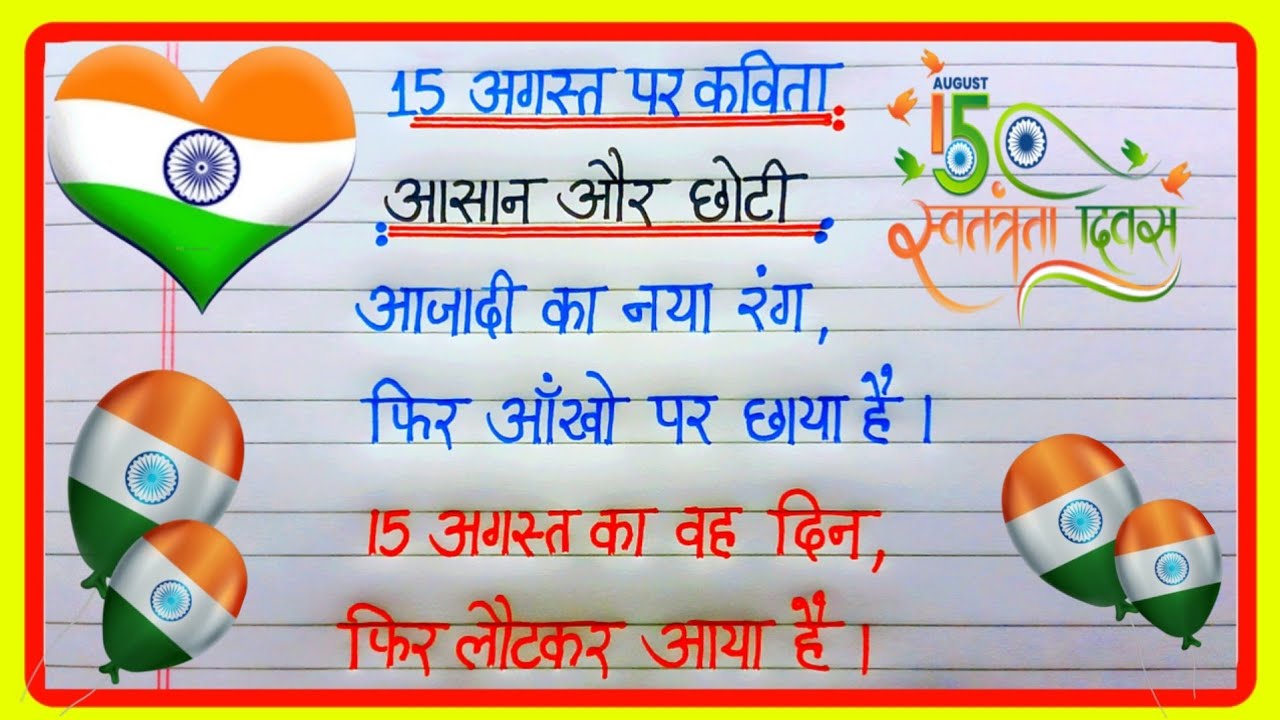 15 अगस्त पर कविता
AUGUST
15
स्वतंत्रता दिवस
आसान और छोटी
आजादी का नया रंग,
फिर आँखो पर छाया है।
15 अगस्त का वह दिन,
फिर लौटकर आया है।